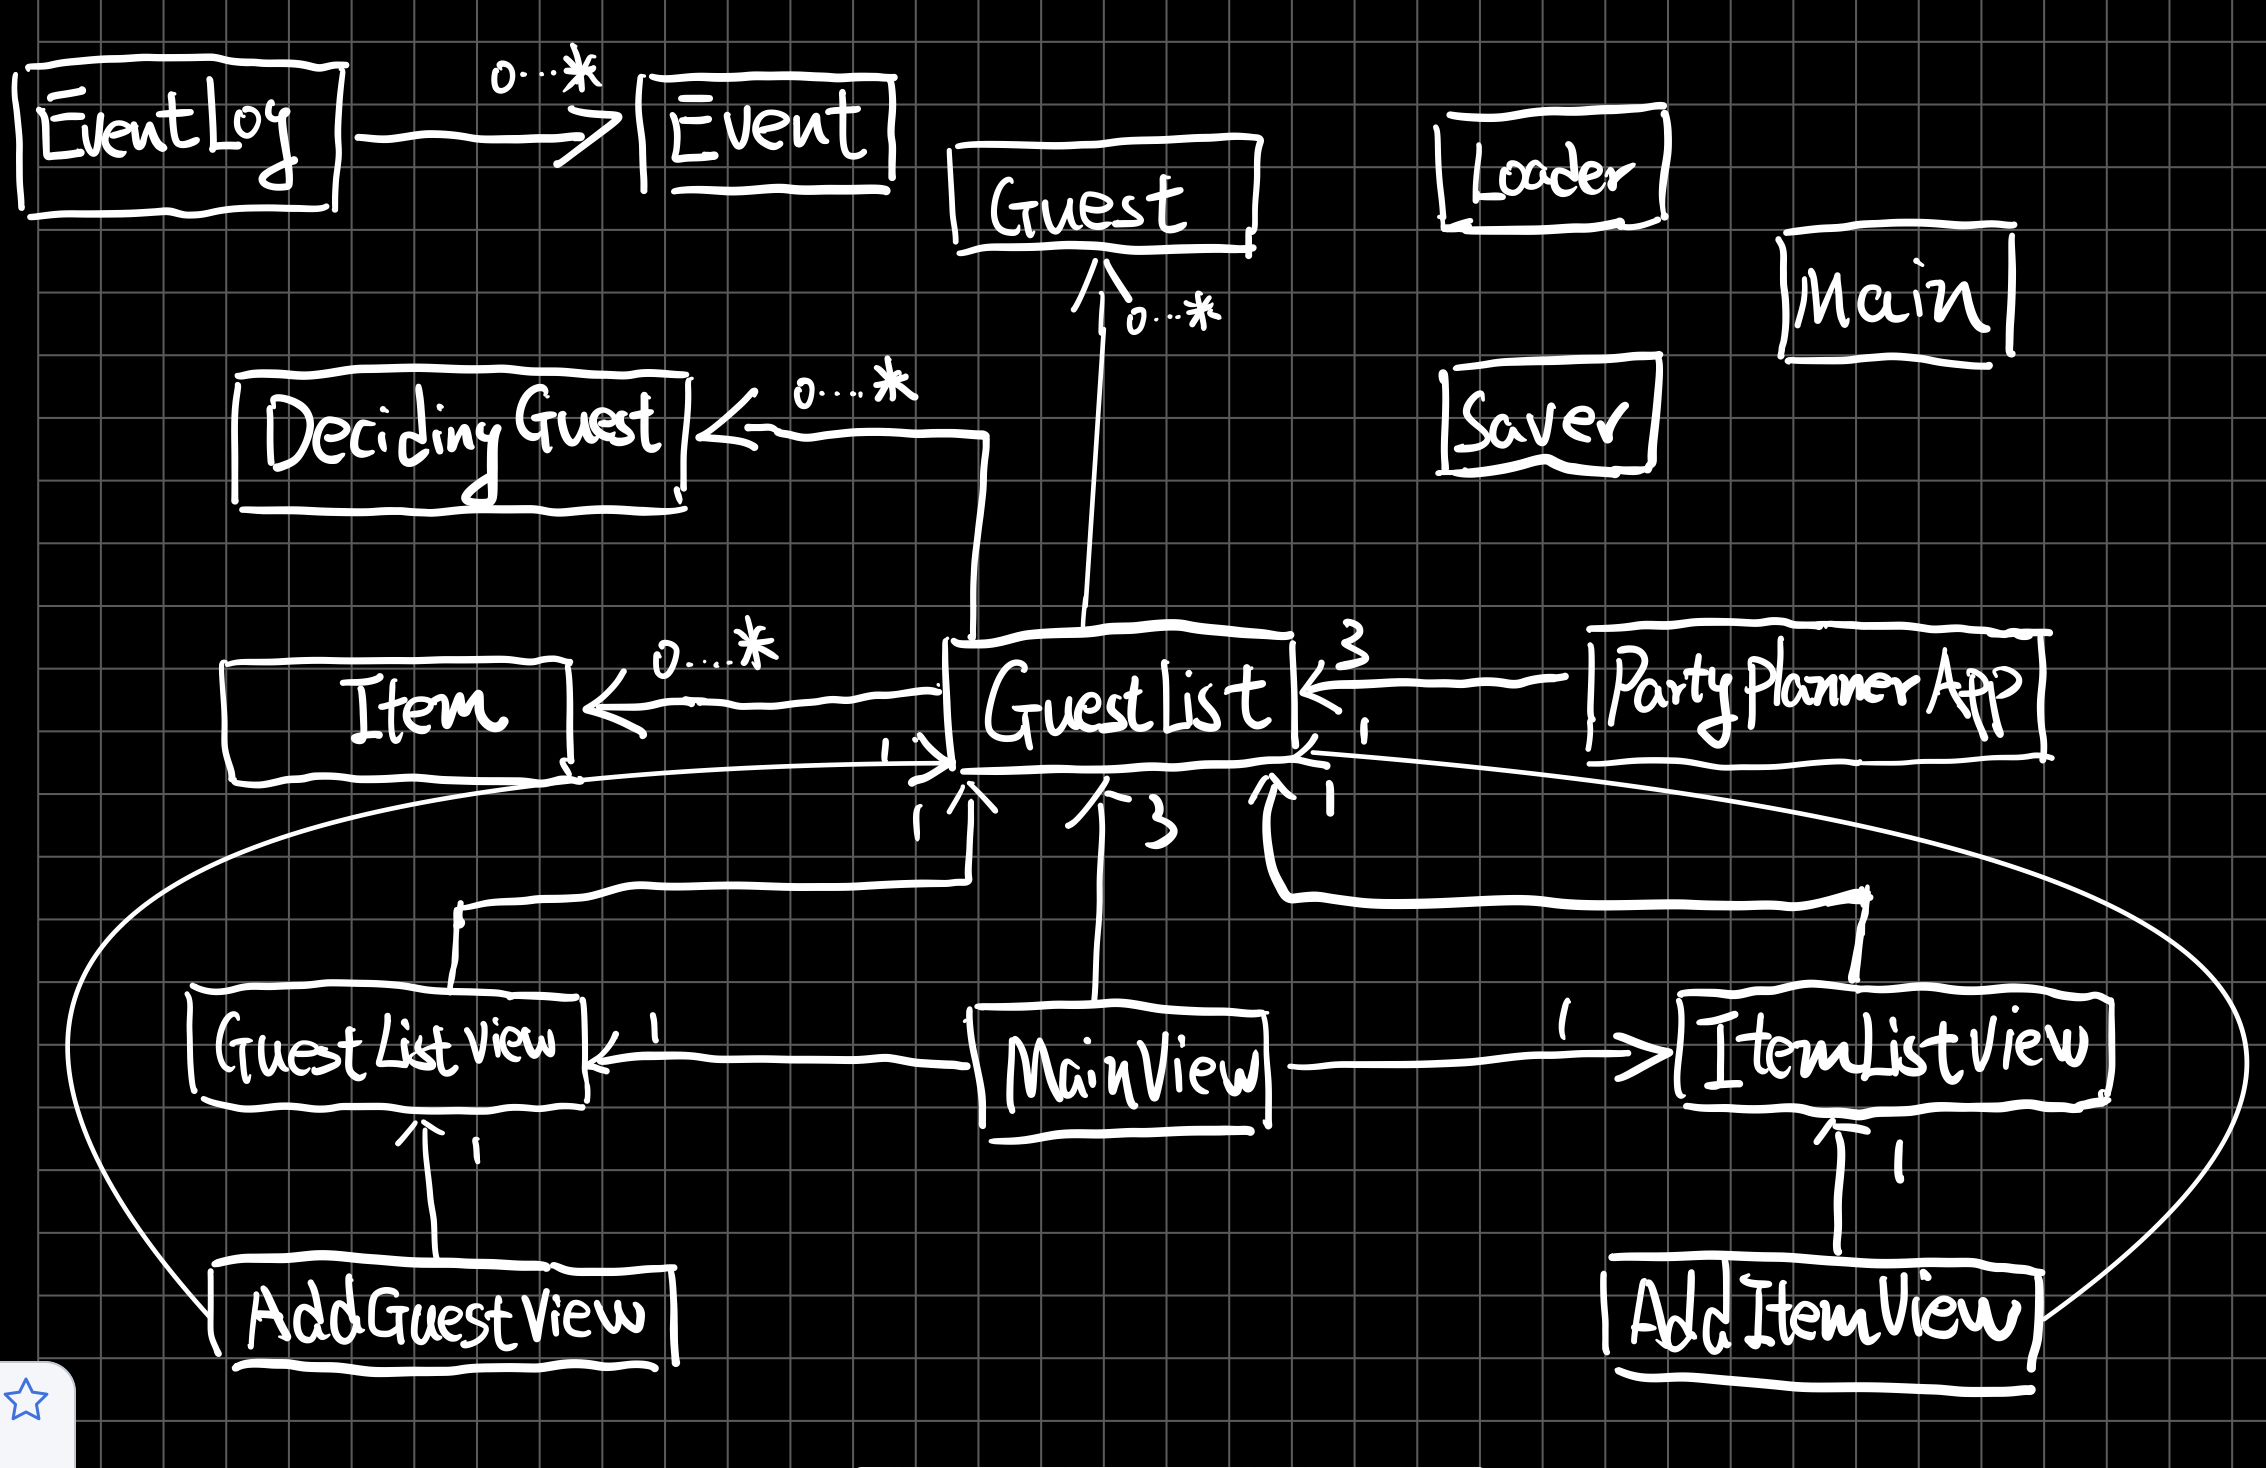 0...*
EventLog
Event
Guest
Loader
Main
0...*
0...*
DecidingGuest
Saver
0...*
3
Item
GuestList
PartyPlannerApp
1
1
1
3
1
GuestListView
1
MainView
1
ItemListView
1
1
AddGuestView
AddItemView